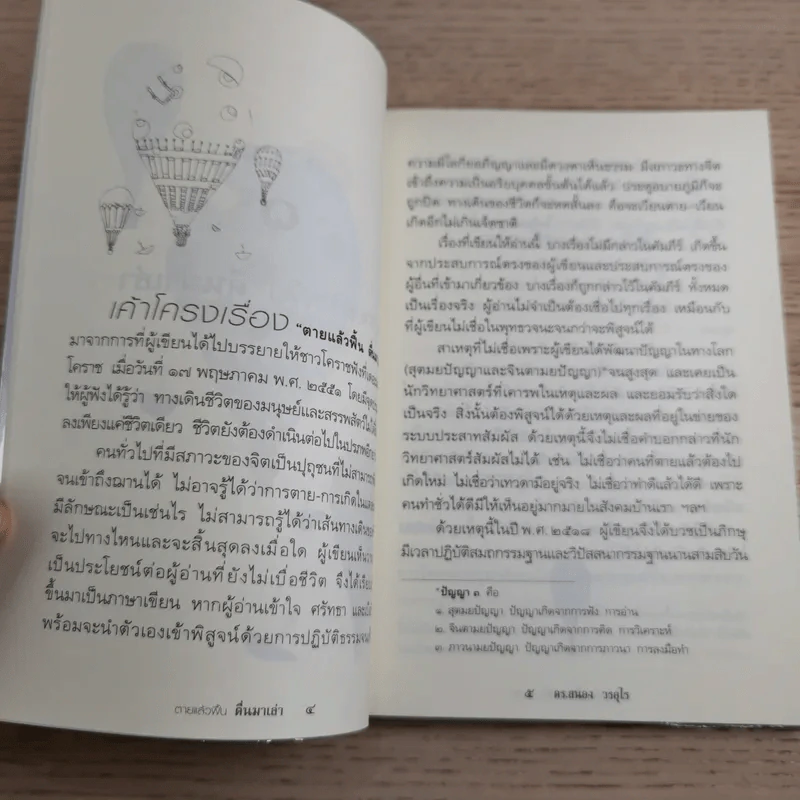 เค้าโครงเรื่อง "ตายแล้วฟื้น
มาจากการที่ผู้เขียนได้ไปบรรยายให้ชาวโคราชฟังที่
โคราช เมื่อวันที่ ๑๗ พฤษภาคม พ.ศ. ๒๕๕๑
ให้ผู้ฟังได้รู้ว่า ทางเดินชีวิตของมนุษย์และสรรพสัตว์
ลงเพียงแค่ชีวิตเดียว ชีวิตยังต้องดำเนินต่อไปในปรภพ
คนทั่วไปที่มีสภาวะของจิตเป็นปุถุชนที่ไม่สามารถ
จนเข้าถึงฌานได้ ไม่อาจรู้ได้ว่าการตาย-การเกิดใน
มีลักษณะเป็นเช่นไร ไม่สามารถรู้ได้ว่าเส้นทางเดิน
จะไปทางไหนและจะสิ้นสุดลงเมื่อใด ผู้เขียนเห็น
เป็นประโยชน์ต่อผู้อ่านที่ยังไม่เบื่อชีวิต จึงได้
ขึ้นมาเป็นภาษาเขียน หากผู้อ่านเข้าใจ ศรัทธา
พร้อมจะนำตัวเองเข้าพิสูจน์ด้วยการปฏิบัติธรรม
ตายแล้วฟื้น ตื่นมาเล่า ๔
ความมีโลกียอภิญญาและมีดวงตาเห็นธรรม มีสภาวะทางจิต
เข้าถึงความเป็นอริยบุคคลขั้นต้นได้แล้ว ประตูอบายภูมิก็จะ
ถูกปิด ทางเดินของชีวิตก็จะหดสั้นลง คือจะเวียนตาย เวียน
เกิดอีกไม่เกินเจ็ดชาติ
เรื่องที่เขียนให้อ่านนี้ บางเรื่องไม่มีกล่าวในคัมภีร์ เกิดขึ้น
จากประสบการณ์ตรงของผู้เขียนและประสบการณ์ตรงของ
ผู้อื่นที่เข้ามาเกี่ยวข้อง บางเรื่องก็ถูกกล่าวไว้ในคัมภีร์ ทั้งหมด
เป็นเรื่องจริง ผู้อ่านไม่จำเป็นต้องเชื่อไปทุกเรื่อง เหมือนกับ
ที่ผู้เขียนไม่เชื่อในพุทธวจนะจนกว่าจะพิสูจน์ได้
สาเหตุที่ไม่เชื่อเพราะผู้เขียนได้พัฒนาปัญญาในทางโลก
(สุตมยปัญญาและจินตามยปัญญา)*จนสูงสุด และเคยเป็น
นักวิทยาศาสตร์ที่เคารพในเหตุและผล และยอมรับว่าสิ่งใด
เป็นจริง สิ่งนั้นต้องพิสูจน์ได้ด้วยเหตุและผลที่อยู่ในข่ายของ
ระบบประสาทสัมผัส ด้วยเหตุนี้จึงไม่เชื่อคำบอกกล่าวที่นัก
วิทยาศาสตร์สัมผัสไม่ได้ เช่น ไม่เชื่อว่าคนที่ตายแล้วต้องไป
เกิดใหม่ ไม่เชื่อว่าเทวดามีอยู่จริง ไม่เชื่อว่าทำดีแล้วได้ดี เพราะ
คนทำชั่วได้ดีมีให้เห็นอยู่มากมายในสังคมบ้านเรา ฯลฯ
ด้วยเหตุนี้ในปี พ.ศ. ๒๕๑๘ ผู้เขียนจึงได้บวชเป็นภิกษุ
มีเวลาปฏิบัติสมถกรรมฐานและวิปัสสนากรรมฐานนานสามสิบวัน
*ปัญญา ๓ คือ
๑. สุตมยปัญญา ปัญญาเกิดจากการฟัง การอ่าน
๒. จินตามยปัญญา ปัญญาเกิดจากการคิด การวิเคราะห์
๓. ภาวนามยปัญญา ปัญญาเกิดจากการภาวนา การลงมือทำ
๕ ดร.สนอง วรอุไร